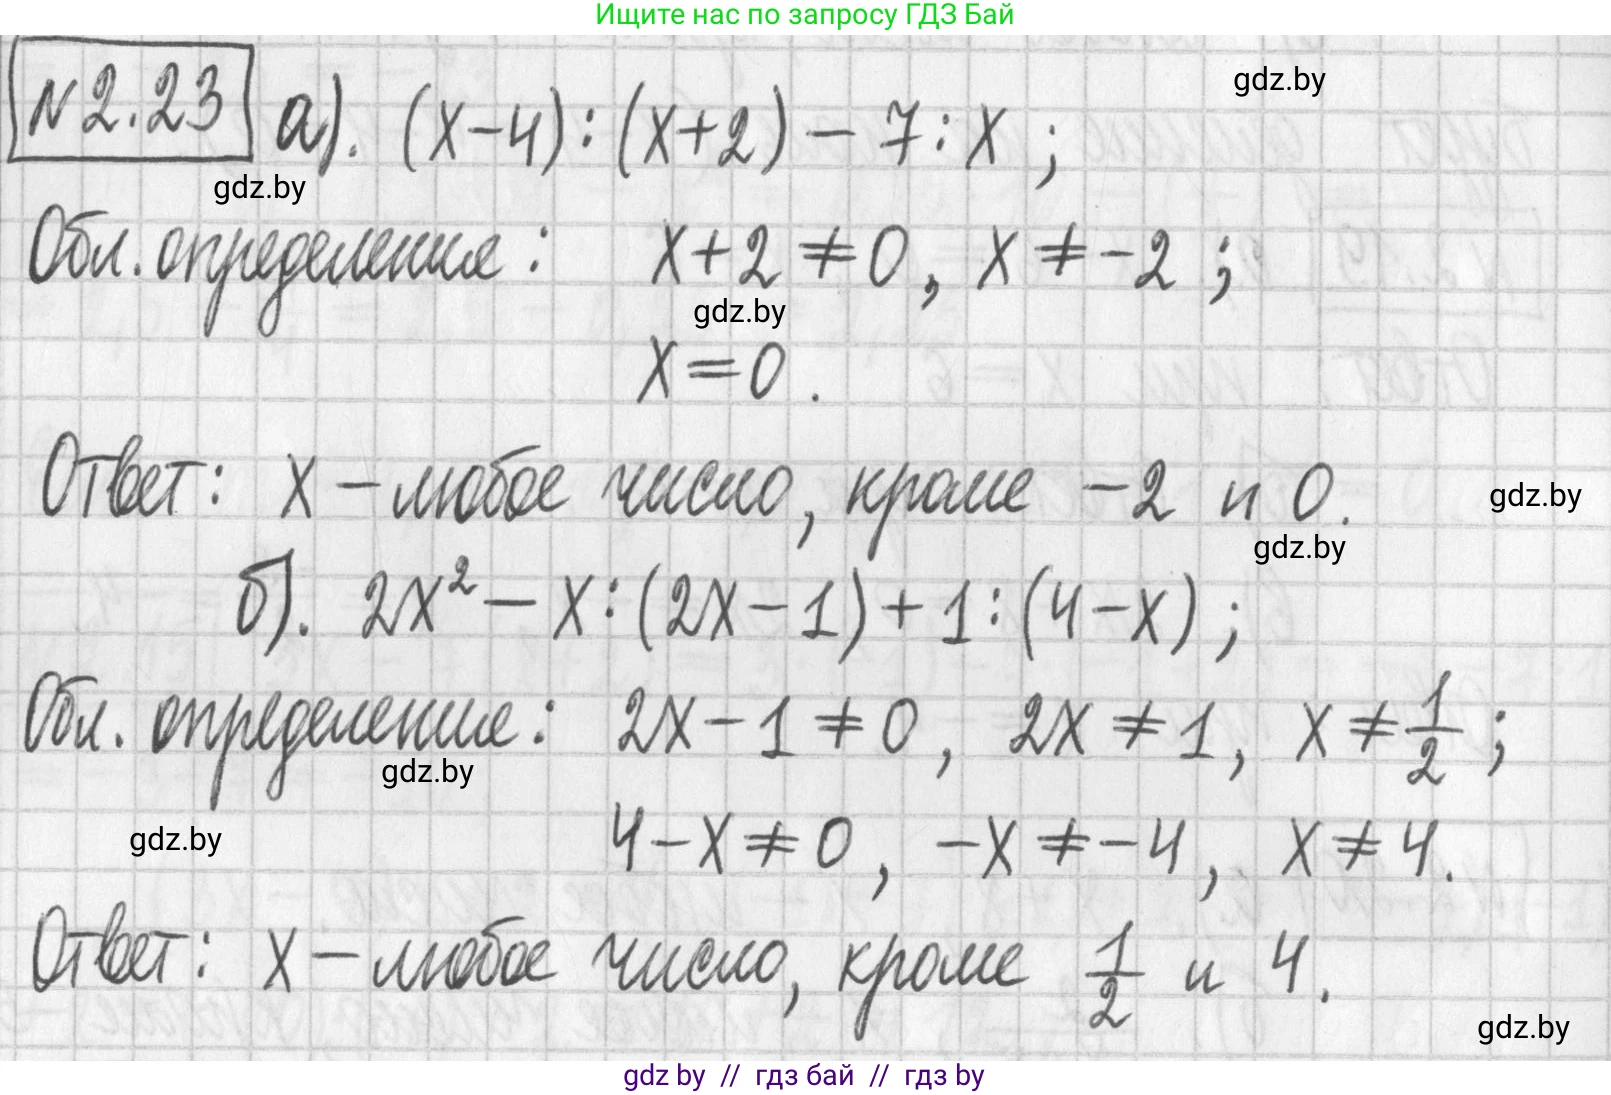 Ищите нас по запросу ГДЗ Бай
gdz.by
N 2.23 а). (x-4):(x+2) - 7:x ;
gdz.by
Обл. определения: x+2≠0, x≠-2 ;
gdz.by
x=0 .
Ответ: x - любое число, кроме -2 и 0.
gdz.by
gdz.by
б). 2x² - x:(2x-1)+1:(4-x) ;
Обл. определения: 2x-1≠0, 2x≠1, x≠1/2 ;
gdz.by
gdz.by
4-x≠0, -x≠-4, x≠4.
Ответ: x - любое число, кроме 1/2 и 4.
gdz.by
gdz by // гдз бай // гдз by